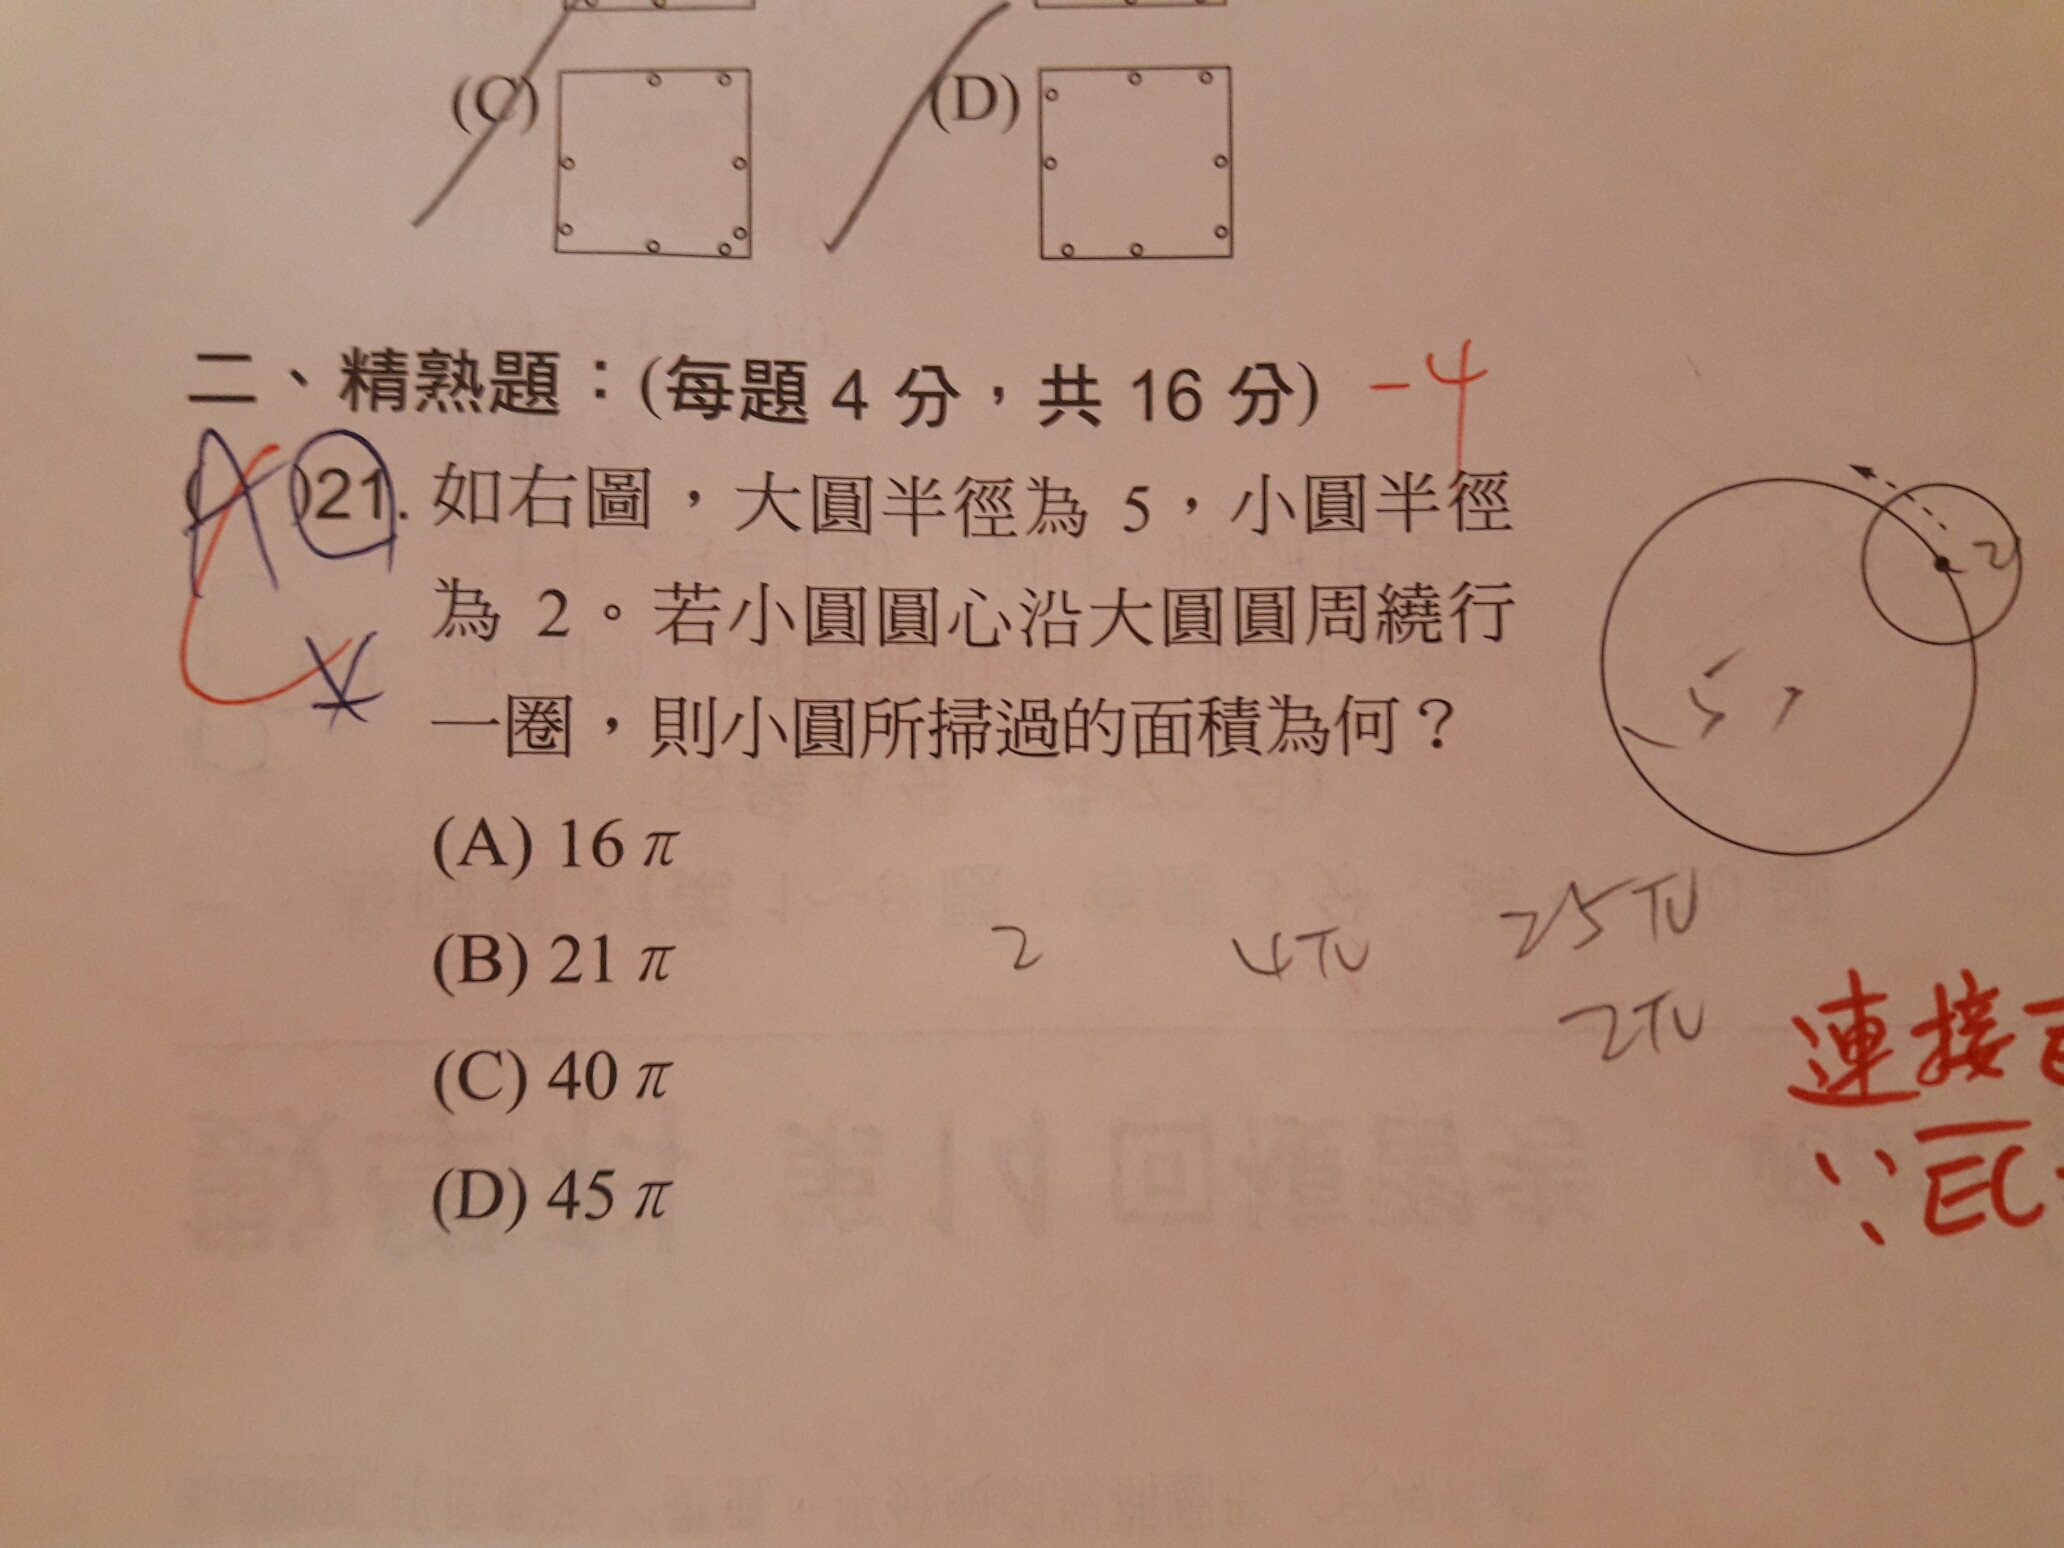 (C) (D)
二、精熟題：(每題 4 分，共 16 分) -4
A )21. 如右圖，大圓半徑為 5，小圓半徑
為 2。若小圓圓心沿大圓圓周繞行
一圈，則小圓所掃過的面積為何？
2
5
(A) 16 π
(B) 21 π
2 4π 25π
(C) 40 π
2π
連接
(D) 45 π
∵ EC